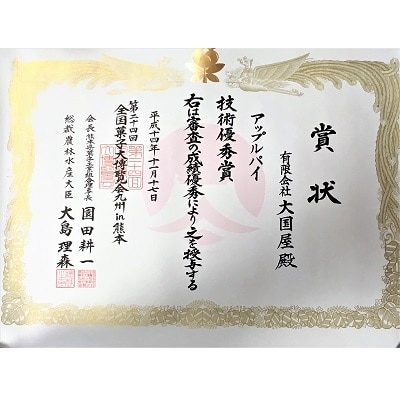 賞状
有限会社 大国屋 殿
アップルパイ
技術優秀賞
右は審査の成績優秀により之を授与する
平成十四年十一月十七日
第二十四回
全国菓子大博覧会九州in熊本
園田耕一
総裁農林水産大臣 大島理森